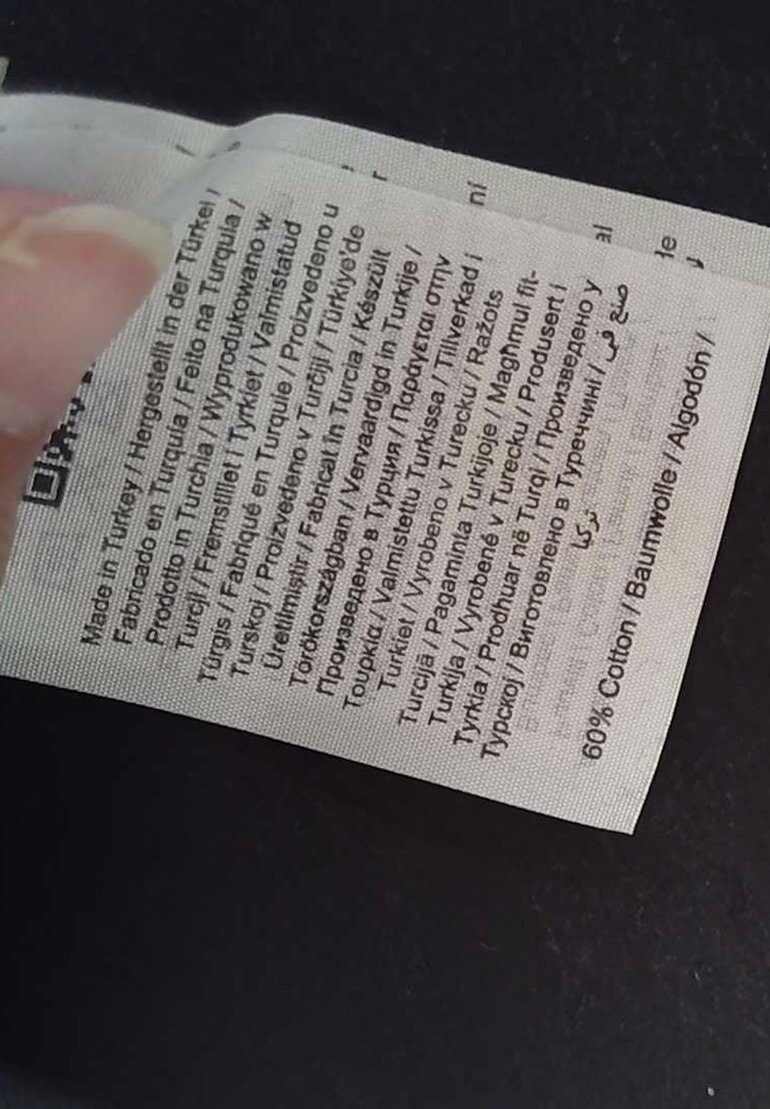 Made in Turkey / Hergestellt in der Türkei /
Fabricado en Turquía / Feito na Turquia /
Prodotto in Turchia / Wyprodukowano w
Turcji / Fremstillet i Tyrkiet / Valmistatud
Türgis / Fabriqué en Turquie / Proizvedeno u
Turskoj / Proizvedeno v Turčiji / Türkiye'de
Üretilmiştir / Fabricat în Turcia / Készült
Törökországban / Vervaardigd in Turkije /
Произведено в Турция / Παράγεται στην
Τουρκία / Valmistettu Turkissa / Tillverkad i
Turkiet / Vyrobeno v Turecku / Ražots
Turcijā / Pagaminta Turkijoje / Magħmul fit-
Turkija / Vyrobené v Turecku / Produsert i
Tyrkia / Prodhuar në Turqi / Произведено у
Турској / Виготовлено в Туреччині / صنع في
تركيا
60% Cotton / Baumwolle / Algodón /